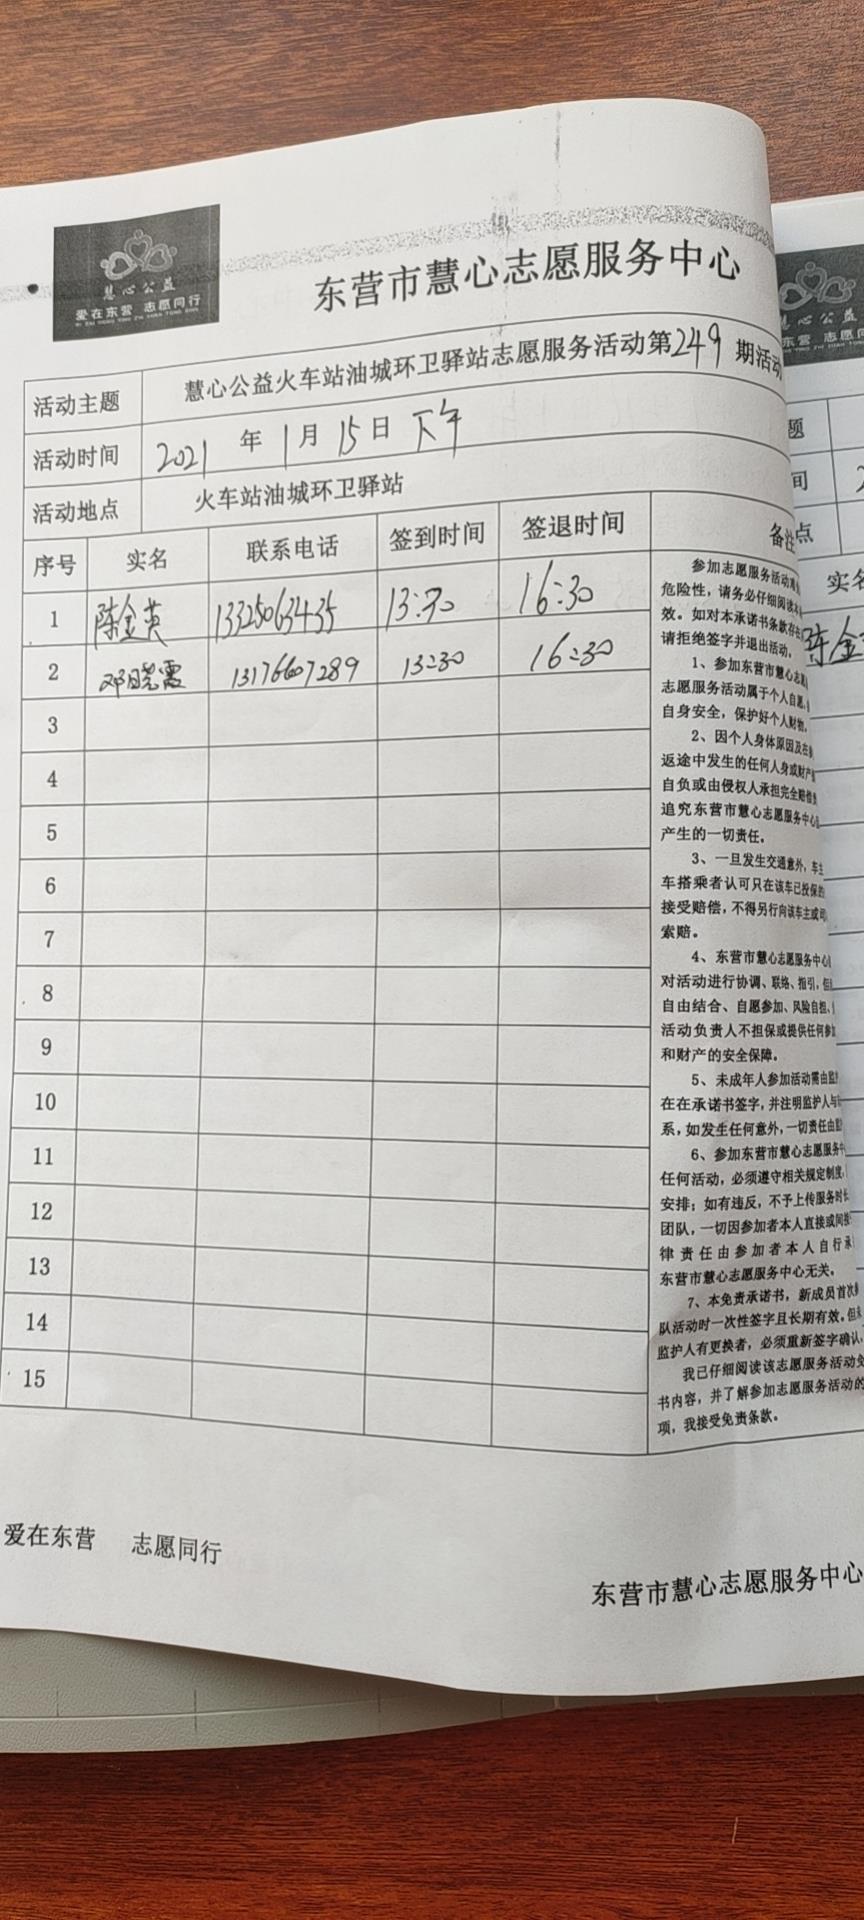 慧心公益
爱在东营 志愿同行
东营市慧心志愿服务中心
活动主题 慧心公益火车站油城环卫驿站志愿服务活动第249期活动
活动时间 2021年1月15日下午
活动地点 火车站油城环卫驿站
序号 实名 联系电话 签到时间 签退时间 备注
1 陈金英 13325063435 13:30 16:30
2 邓晓霞 13176607289 13:30 16:30
3
4
5
6
7
8
9
10
11
12
13
14
15
参加志愿服务活动难
危险性，请务必仔细阅读本
效。如对本承诺书条款存在
请拒绝签字并退出活动。
1、参加东营市慧心志愿
志愿服务活动属于个人自愿，
自身安全，保护好个人财物。
2、因个人身体原因及在
返途中发生的任何人身或财产
自负或由侵权人承担完全赔偿
追究东营市慧心志愿服务中心
产生的一切责任。
3、一旦发生交通意外，车主
车搭乘者认可只在该车已投保的
接受赔偿，不得另行向该车主或司
索赔。
4、东营市慧心志愿服务中心
对活动进行协调、联络、指引，但
自由结合、自愿参加、风险自担、
活动负责人不担保或提供任何参加
和财产的安全保障。
5、未成年人参加活动需由监护
在在承诺书签字，并注明监护人与
系，如发生任何意外，一切责任由监
6、参加东营市慧心志愿服务中
任何活动，必须遵守相关规定制度，
安排；如有违反，不予上传服务时长
团队，一切因参加者本人直接或间接
律责任由参加者本人自行承
东营市慧心志愿服务中心无关。
7、本免责承诺书，新成员首次
队活动时一次性签字且长期有效。但
监护人有更换者，必须重新签字确认，
我已仔细阅读该志愿服务活动免
书内容，并了解参加志愿服务活动的
项，我接受免责条款。
爱在东营 志愿同行
东营市慧心志愿服务中心
心公益
东营 志愿同
题
间 2
点
实名
陈金